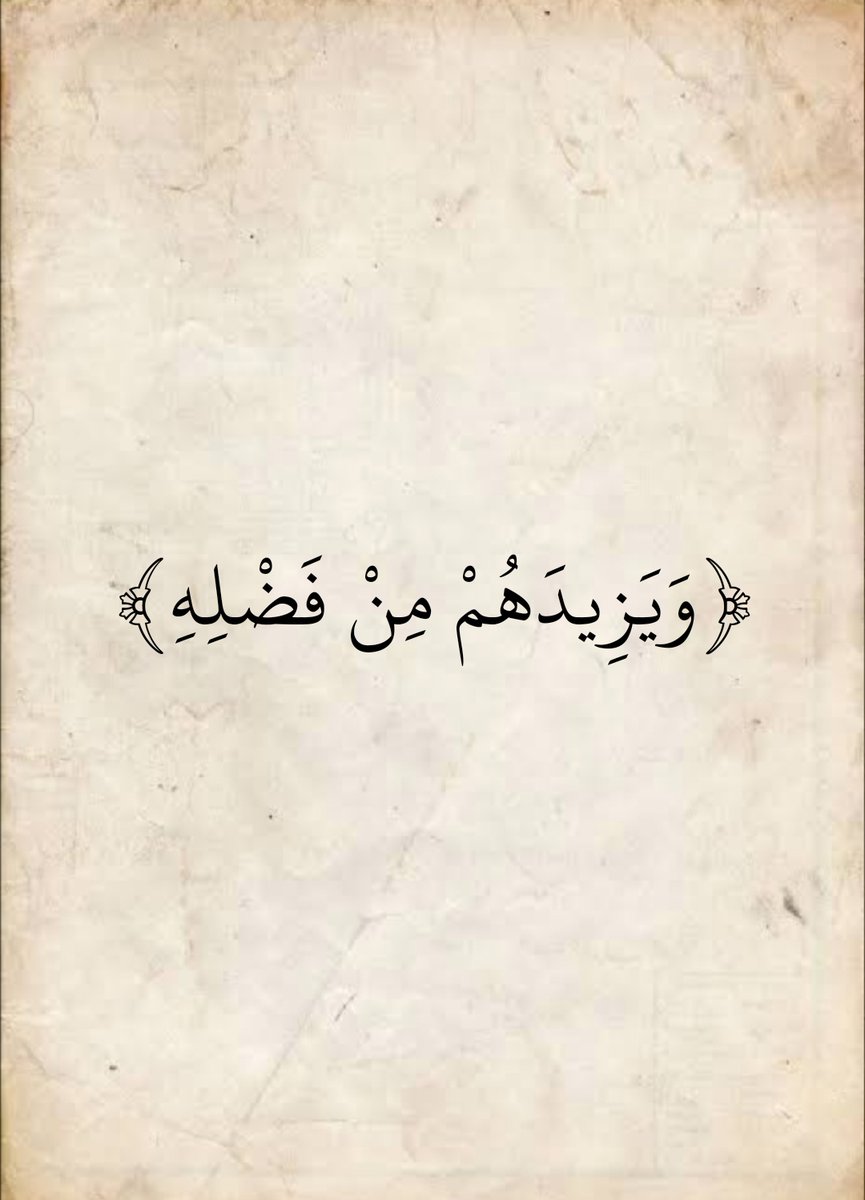 ﴿وَيَزِيدَهُمْ مِنْ فَضْلِهِ﴾